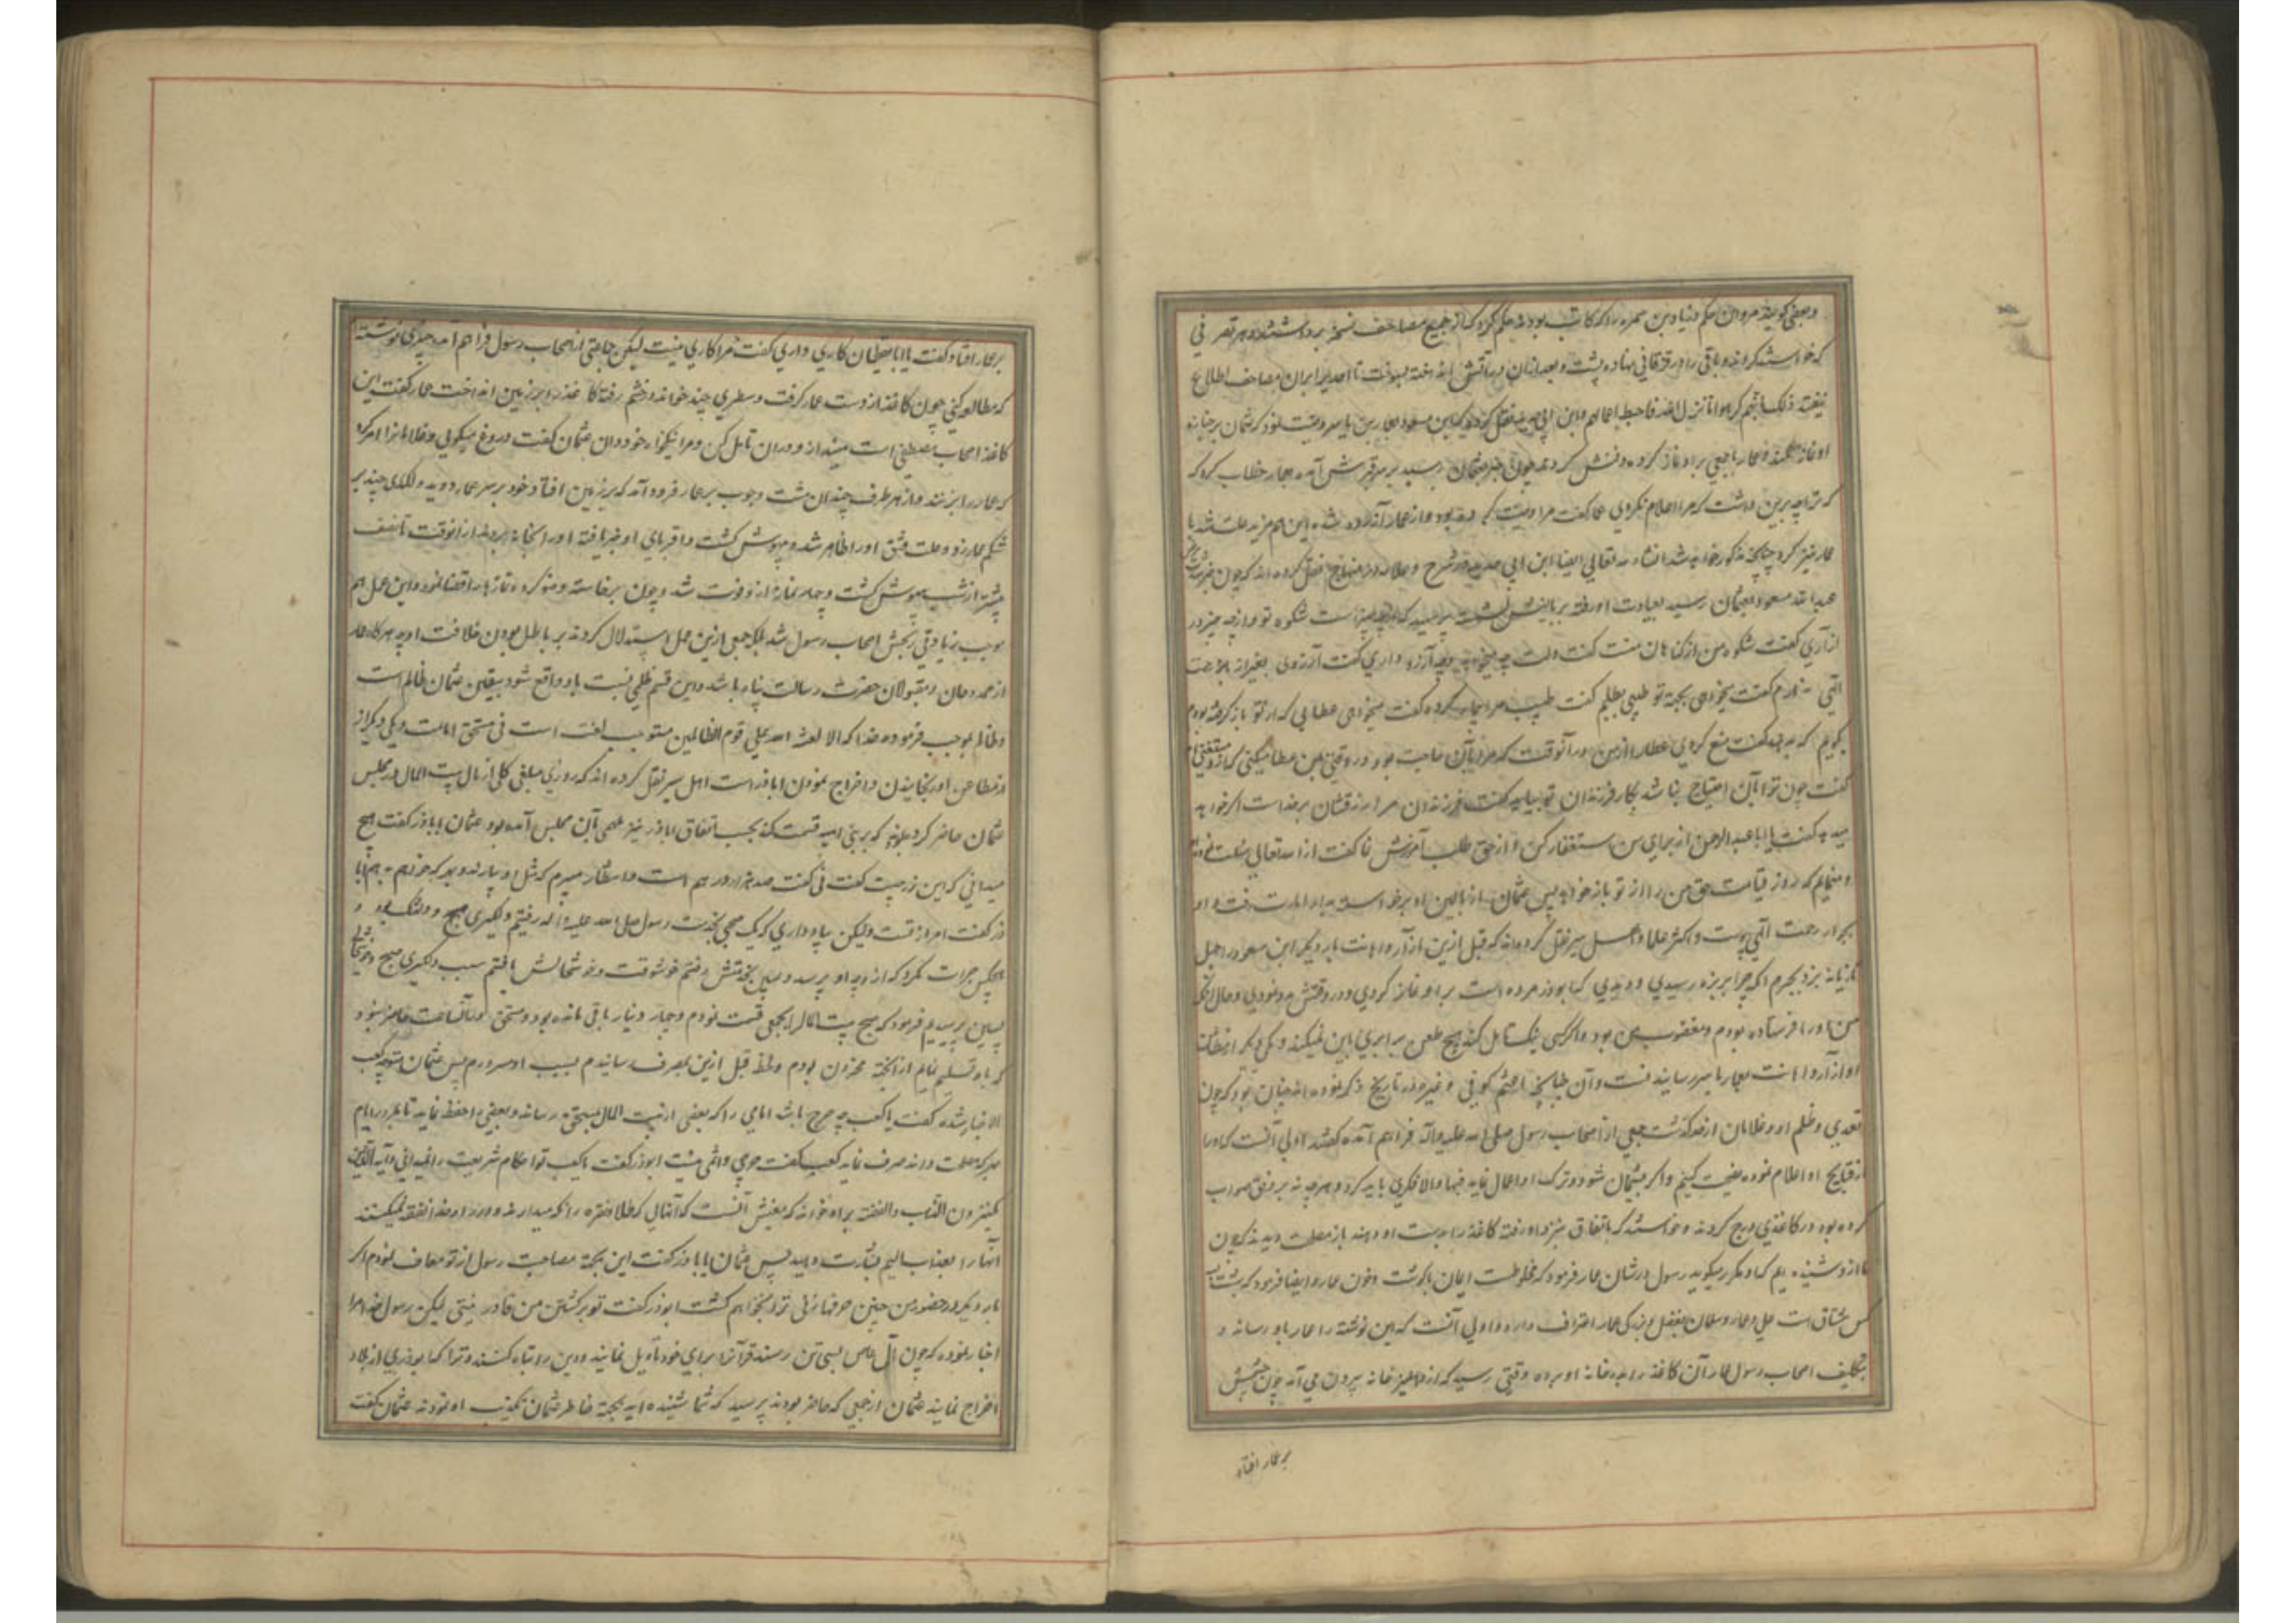 و بعضی گویند مروان حکم و زیاد بن سمره را که کاتب بودند حکم کرد که از جمیع مصاحف نسخه برداشتند و هر قدر فی
که خواستند کردند و باقی را در قزقانی نهاده پخت و بعد از آن در آتش انداخته بسوخت تا احدی را بر آن مصاحف اطلاع
نیفتد ذلک بانهم کرهوا ما انزل الله فاحبط اعمالهم و ابن ابی الحدید نقل کرده که ابن مسعود بعمار بن یاسر وصیت نمود که عثمان بر جنازه
او نماز نکند و عمار با جمعی بر او نماز کرده دفنش کردند چون خبر بعثمان رسید بر سر قبرش آمده بعمار خطاب کرد که
که ترا چه برین داشت که مرا اعلام نکردی عمار گفت مرا وصیت کرده بود و از عمار آزرده شد این هم مزید علت شد با
عمار نیز کرد چنانچه مذکور خواهد شد انشاء الله تعالی ایضا ابن ابی الحدید در شرح و علامه در منهاج نقل کرده اند که چون خبر بیماری
عبدالله مسعود بعثمان رسید بعیادت او رفته بر بالینش نشست پرسید که از چه چیز است شکوه تو و از چه چیز در
آزاری گفت شکوه من از گناهان منست گفت دلت چه میخواهد و چه آرزو داری گفت آرزوی بغیر از رحمت
الهی ندارم گفت میخواهی بجهة تو طبیبی بطلبم گفت طبیب مرا بیمار کرده گفت میخواهی عطایی که از تو باز گرفته بودم
بگویم که بدهند گفت منع کردی عطا را از من در آنوقت که مرا بآن حاجت بود و در وقتی بمن عطا میکنی که از آن مستغنی ام
گفت چون ترا بآن احتیاج نباشد بکار فرزندان تو بیاید گفت فرزندان مرا رزقشان بر خداست اگر خواهد
میدهد گفت یا ابا عبدالرحمن از برای من استغفار کن و از حق طلب آمرزش نما گفت از الله تعالی مسئلت
مینمایم که روز قیامت حق من را از تو باز خواهد پس عثمان از بالین او برخواسته بدار امارت رفت و او
بجوار رحمت الهی پیوست و اکثر علما و اهل سیر نقل کرده اند که قبل ازین از آزار و اهانت بار دیگر ابن مسعود را چهل
تازیانه بزد بجرم آنکه چرا بربذه رسیدی و دیدی که ابوذر مرده است بر او نماز کردی و در دفنش مدد نمودی و حال آنکه
من او را فرستاده بودم و مغضوب من بود و اگر کسی نیک تامل کند هیچ طعن برابری باین نمیکند و یکی دیگر از مطاعن
او آزار و اهانت بعمار یاسر رسانیدنست و آن چنانچه اعثم کوفی و غیره در تاریخ ذکر نموده اند چنان بود که چون
تعدی و ظلم او و غلامان از حد گذشت جمعی از اصحاب رسول صلی الله علیه و آله فراهم آمده گفتند اولی آنست که او را
از قبایح او اعلام نموده نصیحت کنیم و اگر پشیمان شود و ترک آن اعمال نماید فبها و الا فکری باید کرد و هر چه نه بر وفق صواب
کرده بود در کاغذی درج کردند و خواستند که باتفاق نزد او رفته کاغذ را بدست او دهند باز مصلحت دیدند که چون
ما از او شنیده ایم که او مکرر میگوید رسول در شان عمار فرمود که مخلوطست ایمان با گوشت و خون عمار و ایضا فرمود که بهشت
کس مشتاق است علی و عمار و سلمان بفضل و بزرگی عمار اعتراف دارد و اولی آنست که این نوشته را عمار باو رساند و
بتکلیف اصحاب رسول عمار آن کاغذ را بدر خانه او برده وقتی رسید که از دهلیز خانه بیرون می آمد چون چشمش
بر عمار افتاد
بر عمار افتاد گفت یا ابا یقظان کاری داری گفت مرا کاری نیست لیکن جماعتی از اصحاب رسول فراهم آمده چیزی نوشته اند
که مطالعه کنی چون کاغذ از دست عمار گرفت و سطری چند خواند و خشم رفته کاغذ را بر زمین انداخت عمار گفت این
کاغذ اصحاب مصطفی است مینداز و در آن تامل کن و مرا نیکخواه خود دان عثمان گفت دروغ میگویی و غلامانرا امر کرد
که عمار را بزنند و از هر طرف چندان مشت و چوب بر عمار فرود آمد که بر زمین افتاد و خود بر سر عمار دوید و لگدی چند بر
شکم عمار زد و علت فتق او را ظاهر شد و بیهوش گشت و اقربای او خبر یافته او را بخانه بردند از آنوقت تا نصف
بیشتر از شب بیهوش گشت و چهار نماز از او فوت شد و چون برخاسته وضو کرده نمازها را قضا نمود و این عمل هم
موجب زیادتی رنجش اصحاب رسول شد بلکه جمعی ازین عمل استدلال کردند بر باطل بودن خلافت او چه هر گاه عمار
از ممدوحان و مقبولان حضرت رسالت پناه باشد و این قسم ظلمی نسبت باو واقع شود بیقین عثمان ظالم است
و ظالم بموجب فرموده خدا که الا لعنة الله علی القوم الظالمین مستوجب لعنت است نی مستحق امامت و یکی دیگر از
از مطاعن او رنجانیدن و اخراج نمودن اباذر است اهل سیر نقل کرده اند که روزی مبلغی کلی از مال بیت المال در مجلس
عثمان حاضر کرده بودند که بر بنی امیه قسمت کند بحسب اتفاق اباذر نیز بآن مجلس آمده بود عثمان باباذر گفت هیچ
میدانی که این زر چیست گفت نی گفت صد هزار درهم است و انتظار میبرم که مثل او بیارند و بهر که خواهم بدهم ابا
ذر گفت امر از تست ولیکن بیاد داری که یک صبحی بخدمت رسول صلی الله علیه و اله رفتیم و دلگیری صبح و دلتنگ بود و
هیچکس جرات نکرد که از او چه او پرسد و پسین بخدمتش رفتم خوشوقت و خوشحالش یافتم سبب دلگیری صبح و خوشحالی
پسین پرسیدم فرمود که صبح بیت المال را بجمعی قسمت نمودم و چهار دینار باقی مانده بود و مستحقی در آنساعت حاضر نبود
که باو تسلیم نمایم از آنجهة محزون بودم و لحظه قبل ازین بمصرف رسانیدم بسبب او مسرورم پس عثمان متوجه کعب
الاخبار شده گفت یا کعب چه حرج باشد امامی را که بعضی از بیت المال بمستحق رساند و بعضی را حفظ نماید تا بمرور ایام
بهر که مصلحت داند صرف نماید کعب گفت حرجی و اثمی نیست ابوذر گفت یا کعب تو احکام شریعت را نمیدانی و آیه الذین
یکنزون الذهب والفضة بر او خواند که معنیش آنست که آنهایی که طلا و نقره را نگه میدارند و در راه خدا نفقه نمیکنند
آنها را بعذاب الیم بشارت دهید پس عثمان باباذر گفت این بجهة مصاحبت رسول از تو معاف نمودم اگر
بار دیگر در حضور من چنین حرفها زنی ترا بخواهم کشت ابوذر گفت تو بر کشتن من قادر نیستی لیکن رسول خدا مرا
اخبار نموده که چون آل عاص بسی تن رسند قرآنرا برای خود تاویل نمایند و دین را تباه کنند و ترا که ابوذری از بلاد
اخراج نمایند عثمان از جمعی که حاضر بودند پرسید که شما شنیده اید بجهة خاطر عثمان تکذیب او نمودند عثمان گفت